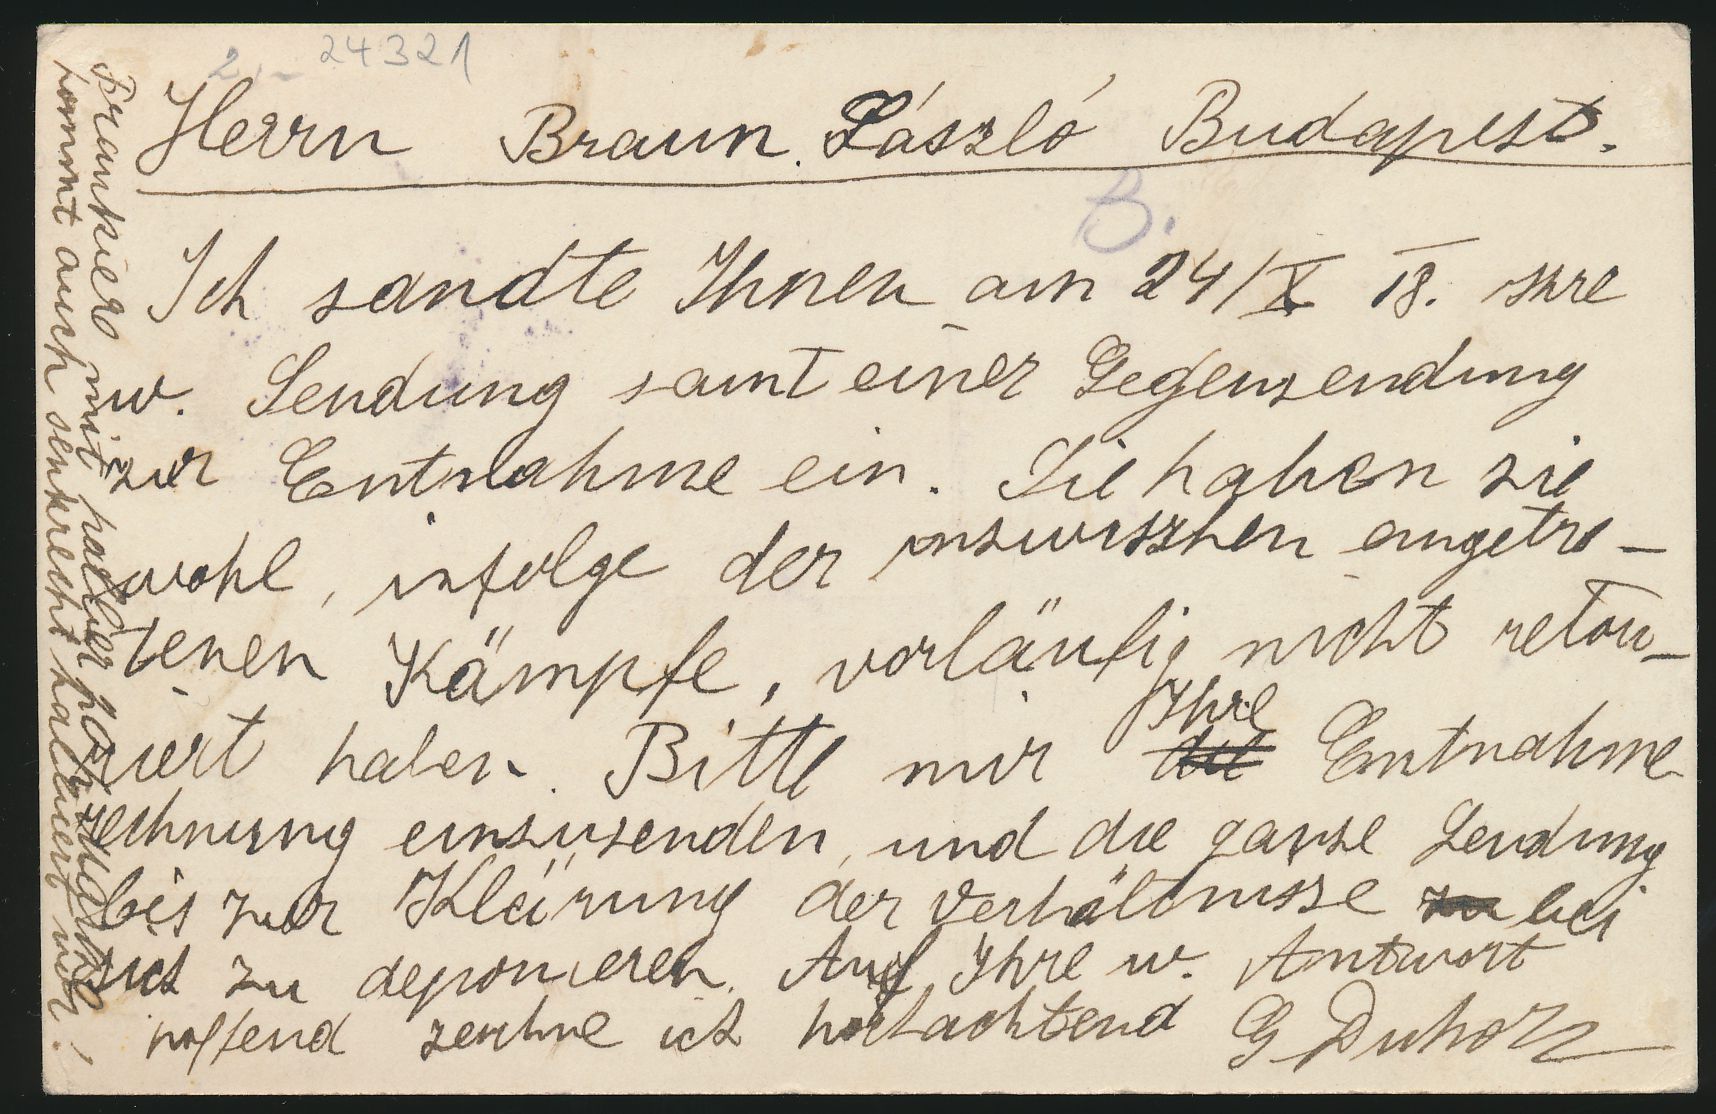 2.- 24321
Herrn Braun László Budapest.
B.
Ich sandte Ihnen am 24/X 18. Ihre
w. Sendung samt einer Gegensendung
zur Entnahme ein. Sie haben sie
wohl, infolge der inzwischen eingetre-
tenen Kämpfe, vorläufig nicht retou-
niert haben. Bitte mir Ihre Entnahme
rechnung einzusenden, und die ganze Sendung
bis zur Klärung der Verhältnisse zu bei
sich zu deponieren. Auf Ihre w. Antwort
hoffend zeichne ich hochachtend G
Frankiere mit halber
kommt auch senkrecht halbiert vor!